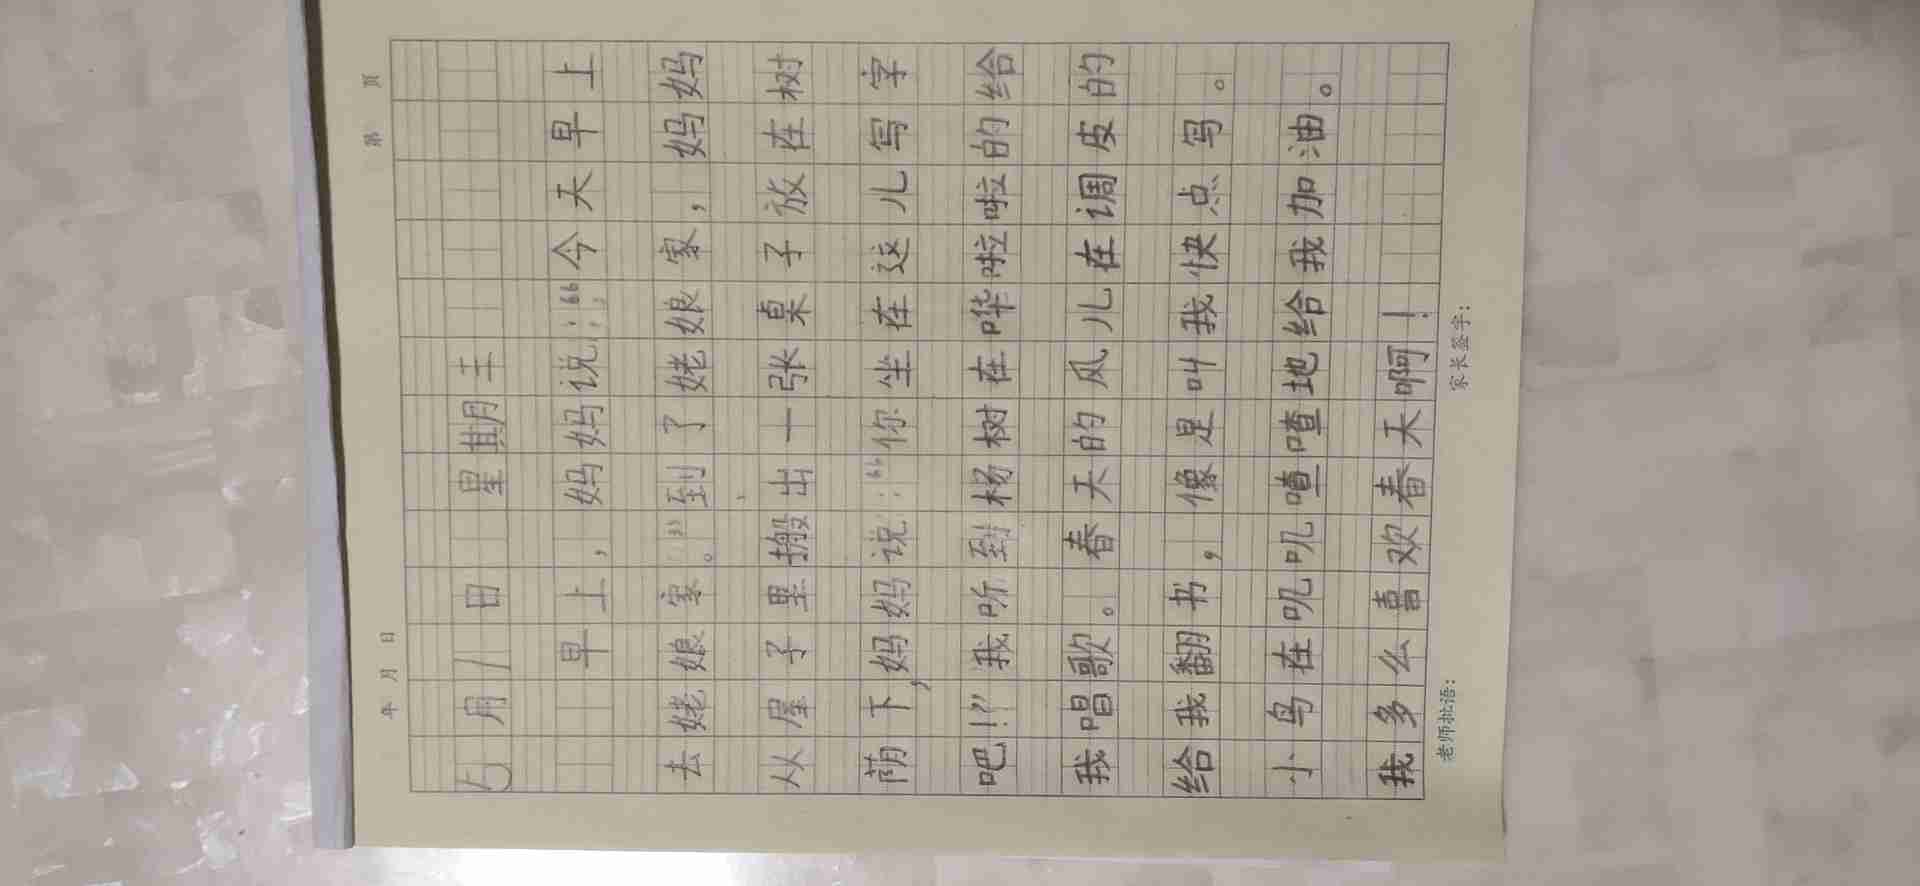 年 月 日 第 页
5月1日 星期三
早上，妈妈说：“今天早上
去姥娘家。”到了姥娘家，妈妈
从屋子里搬出一张桌子放在树
荫下，妈妈说：“你坐在这儿写字
吧！”我听到杨树在哗啦啦的给
我唱歌。春天的风儿在调皮的
给我翻书，像是叫我快点写。
小鸟在叽叽喳喳地给我加油。
我多么喜欢春天啊！
老师批语： 家长签字：